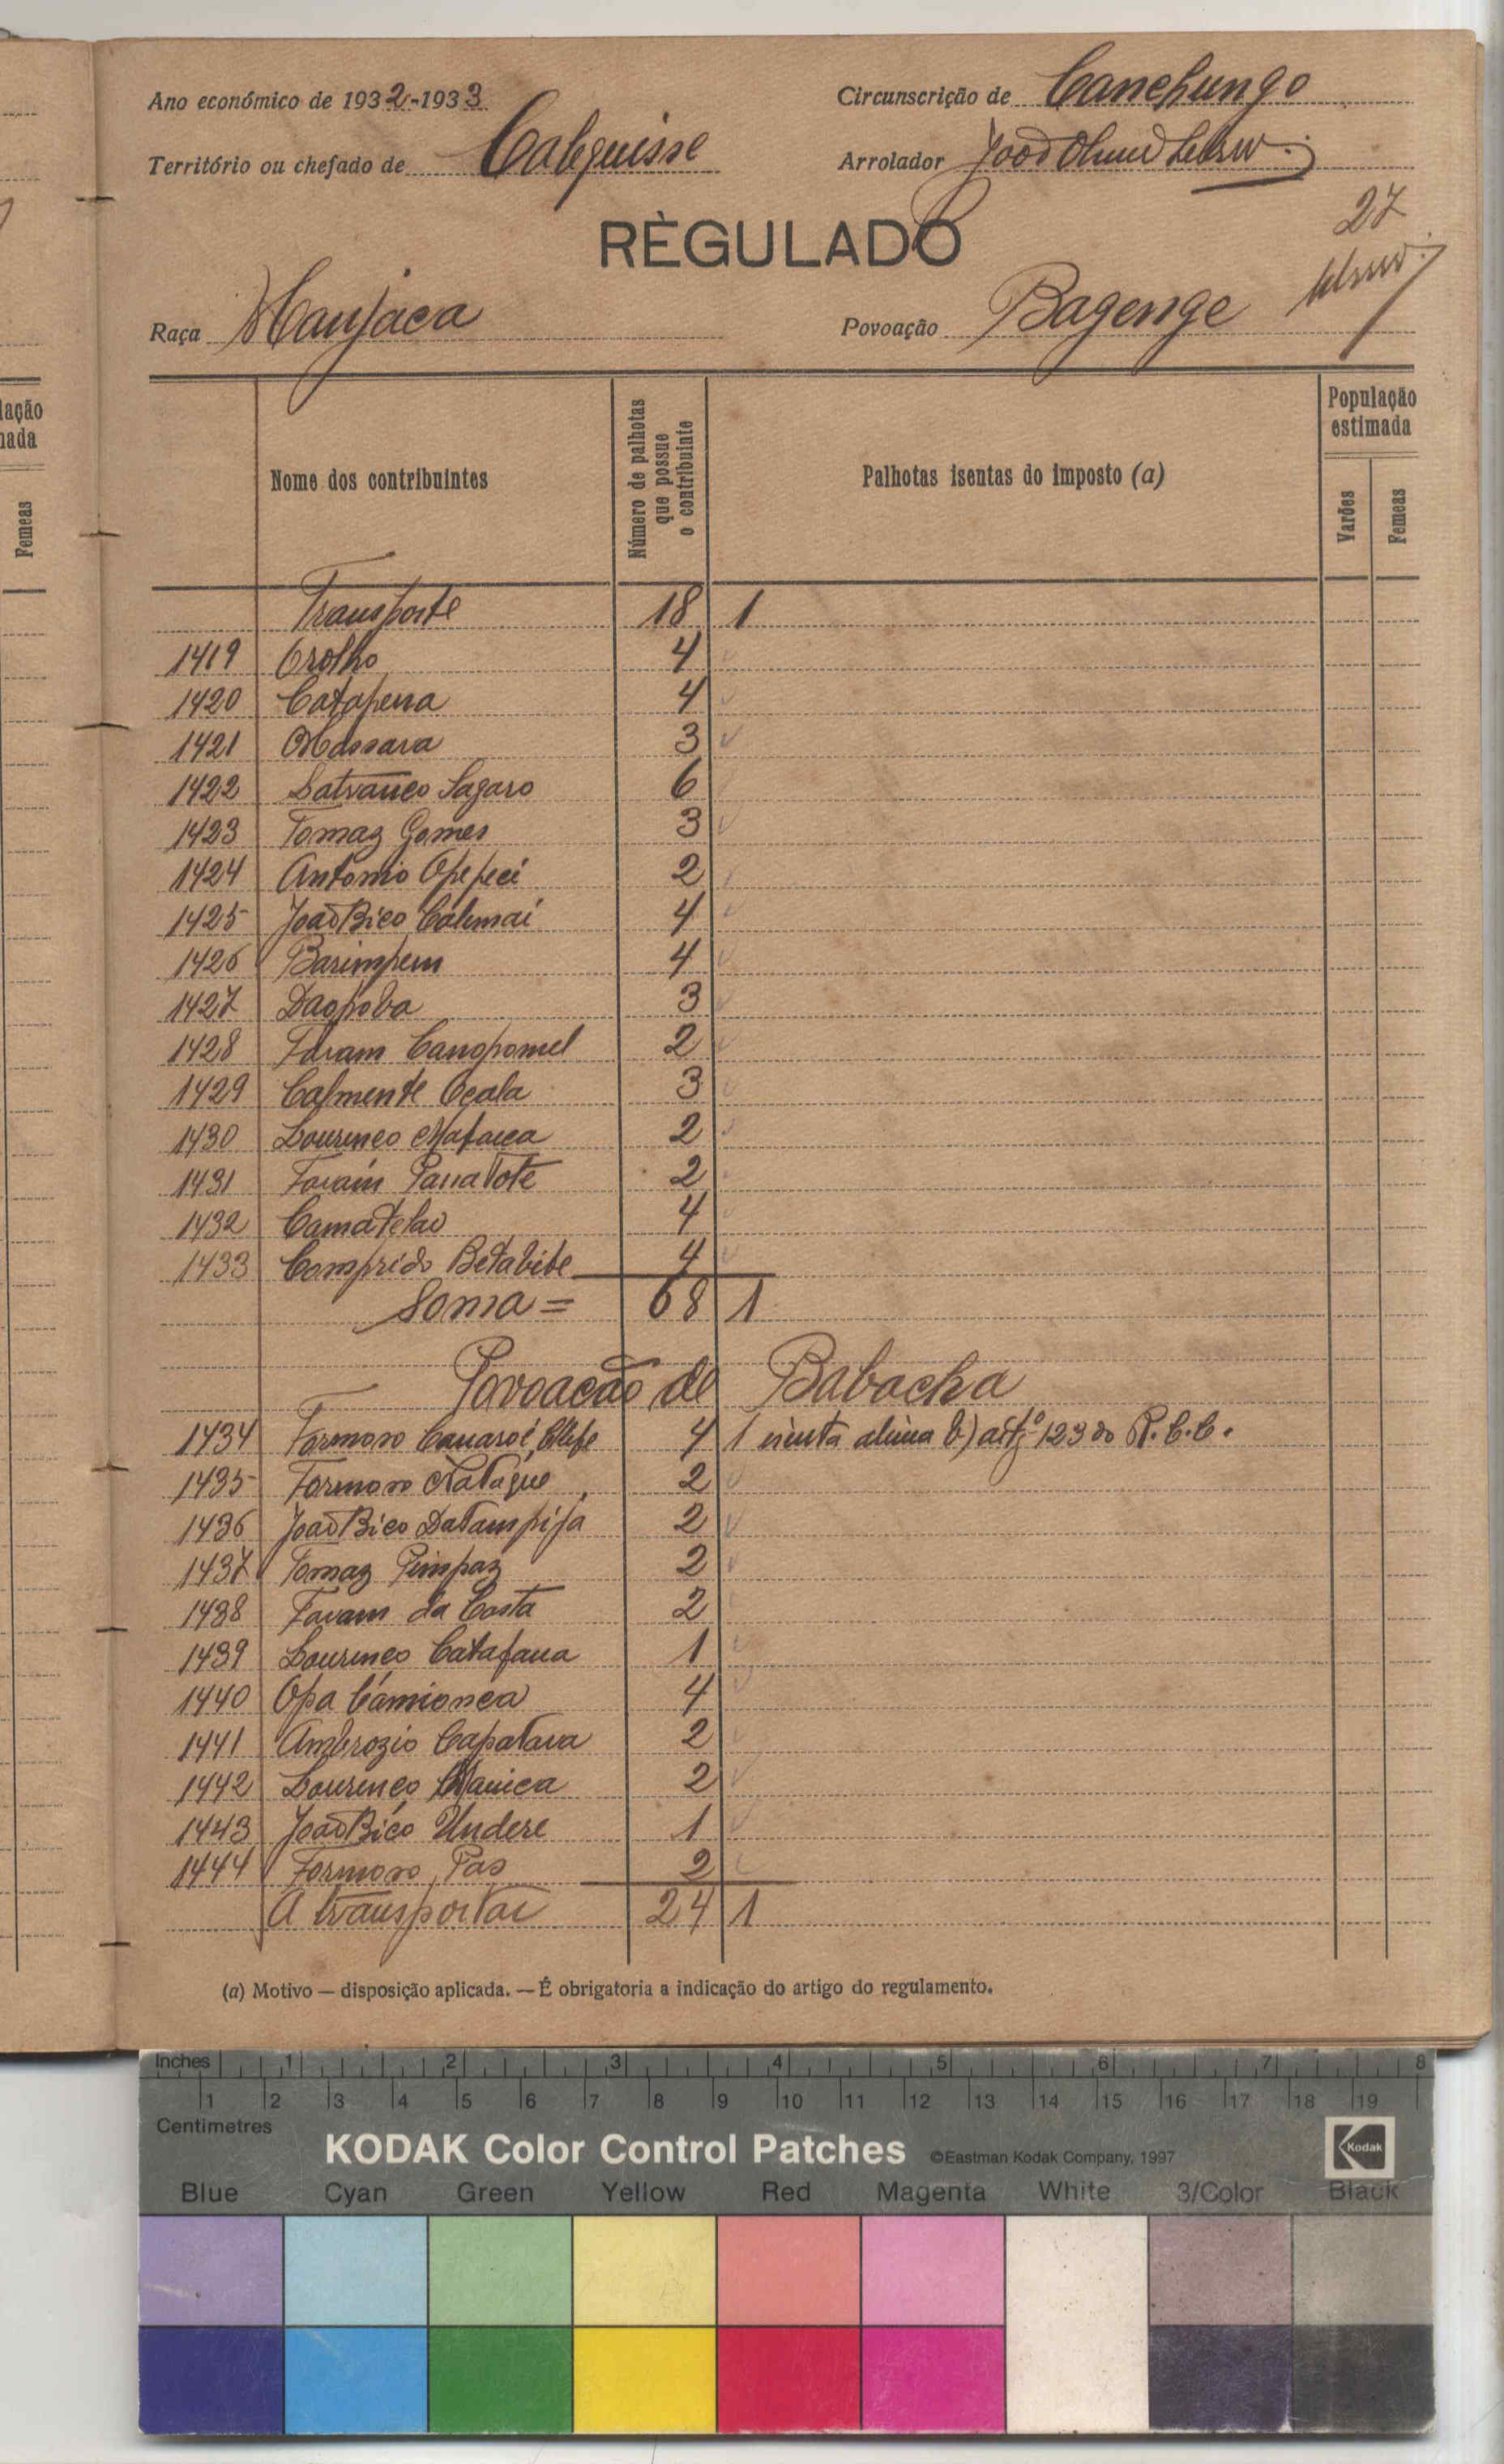 Ano económico de 1932-1933
Circunscrição de Canchungo
Território ou chefado de Calequisse
Arrolador João
27
RÈGULADO
Raça Manjaca
Povoação Bagenge
lação
nada
Femeas
Nome dos contribuintes
Número de palhotas que possue o contribuinte
Palhotas isentas do imposto (a)
População estimada
Varões
Femeas
Transporte 18 1
1419 Orolho 4
1420 Catapena 4
1421 Massara 3
1422 Satranco Sagaro 6
1423 Tomaz Gomes 3
1424 Antonio Opepeci 2
1425 João Bico Calemai 4
1426 Barimpem 4
1427 Dagpoba 3
1428 Faram Cangpomel 2
1429 Calmente Ocala 3
1430 Lourenco 2
1431 Faram Panatote 2
1432 Camatelao 4
1433 Comprido Betabibe 4
Soma = 68 1
Povoacão de Babacha
1434 Formoso 4 1 isenta alinea b) artº 123 do R.C.C.
1435 Formoso Natague 2
1436 João Bico Datampifa 2
1437 Tomaz Pimpaz 2
1438 Faram da Costa 2
1439 Lourenço Catafana 1
1440 Opa Camionca 4
1441 Ambrozio Capatava 2
1442 Lourenço Manica 2
1443 João Bico Undere 1
1444 Formoso Pas 2
A transportar 24 1
(a) Motivo — disposição aplicada. — É obrigatoria a indicação do artigo do regulamento.
Inches 1 2 3 4 5 6 7 8
1 2 3 4 5 6 7 8 9 10 11 12 13 14 15 16 17 18 19
Centimetres
KODAK Color Control Patches ©Eastman Kodak Company, 1997 Kodak
Blue Cyan Green Yellow Red Magenta White 3/Color Black